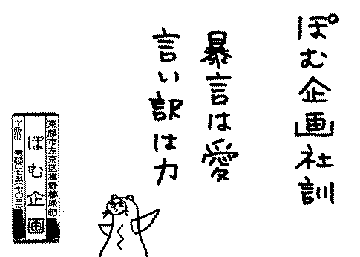 ぽむ企画社訓
暴言は愛
言い訳は力
ぽむ企画